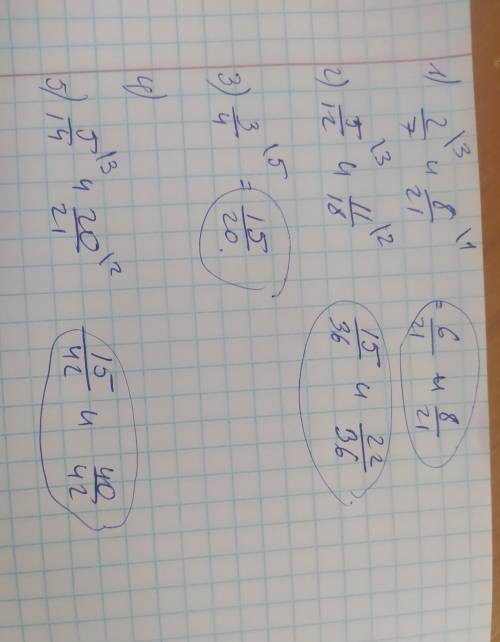 1) 2/7 \3 и 8/21 \1 = 6/21 и 8/21
2) 5/12 \3 и 11/18 \2 15/36 и 22/36
3) 3/4 \5 = 15/20.
4)
5) 5/14 \3 и 20/21 \2 15/42 и 40/42